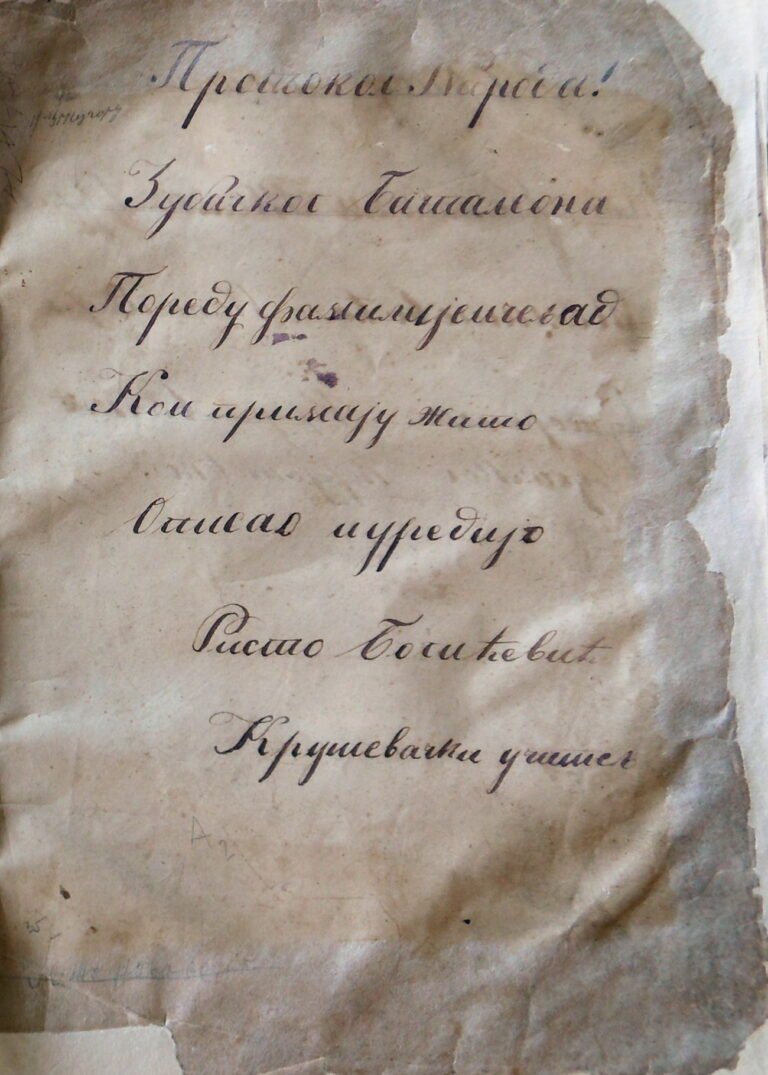 Протокол Народа!
Зубачког Баталиона
Пореду фамилије и чељад
Кои примају жито
Описао и уредијо
Ристо Босићевић
Крушевачки учитељ